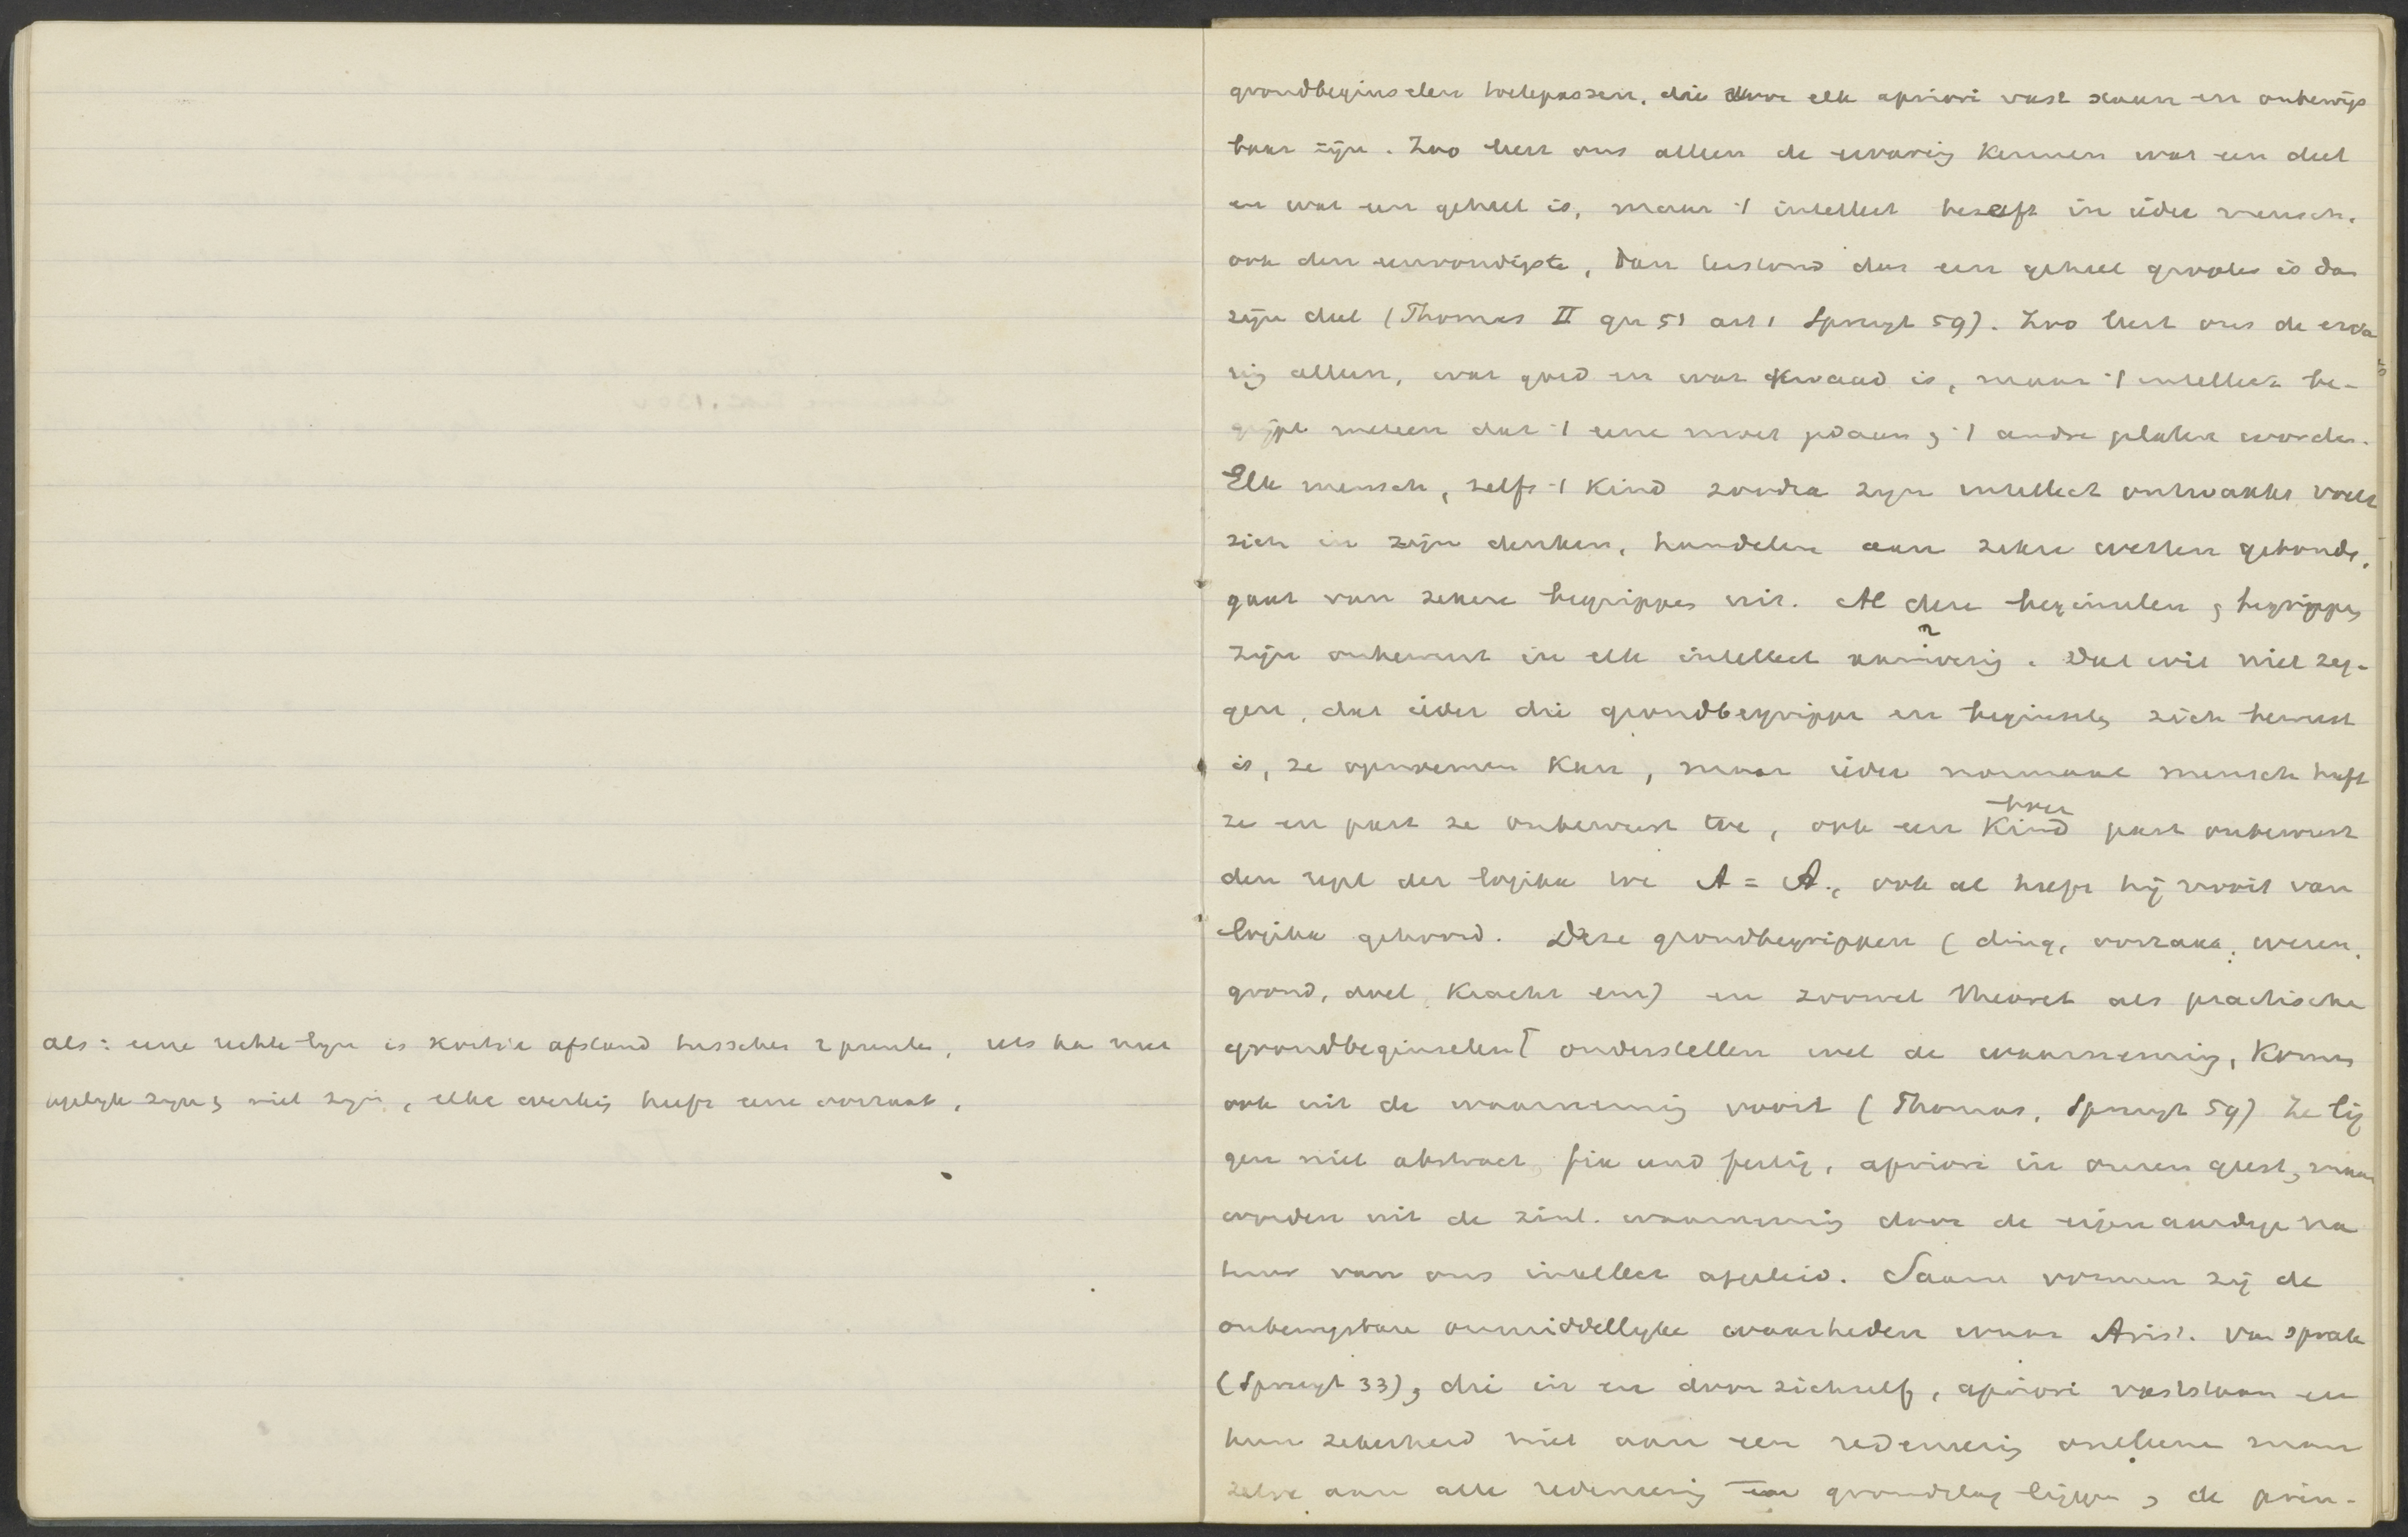 als: eene rechte lijn is kortste afstand tusschen 2 punten, iets kan niet
tegelijk zijn en niet zijn, elke werking heeft eene oorzaak.
grondbeginselen toepassen, die voor elk apriori vast staan en onbewijs
baar zijn. Zoo leert ons alleen de ervaring kennen wat een deel
en wat een geheel is, maar 't intellect beseft in ieder mensch,
ook den eenvoudigste, dan terstond dat een geheel grooter is dan
zijn deel (Thomas II qu 51 art 1 Spruyt 59). Zoo leert ons de erva
ring alleen, wat goed en wat kwaad is, maar 't intellect be-
grijpt meteen dat 't eene moet gedaan en 't andre gelaten worden.
Elk mensch, zelfs 't kind zoodra zijn intellect ontwaakt voelt
zich in zijn denken, handelen aan zekere wetten gebonden,
gaat van zekere begrippen uit. Al deze beginselen en begrippen
zijn onbewust in elk intellect aanwezig. Dat wil niet zeg-
gen, dat ieder die grondbegrippen en beginselen zich bewust
is, ze opnoemen kan, maar ieder normaal mensch heeft
ze en past ze onbewust toe, ook een kind past onbewust
den regel der logika toe A = A, ook al heeft hij nooit van
logika gehoord. Deze grondbegrippen (ding, oorzaak, wezen,
grond, doel, kracht enz) en zoowel theoret als practische
grondbeginselen⌈ onderstellen wel de waarneming, komen
ook uit de waarneming voort (Thomas, Spruyt 59) Ze lig
gen niet abstract, fix und fertig, apriori in onzen geest, maar
worden uit de zinl. waarneming door de eigenaardige na
tuur van ons intellect afgeleid. Saam vormen zij de
onbewijsbare onmiddellijke waarheden waar Arist. van sprak
(Spruyt 33), die in en door zichzelf, apriori vaststaan en
hun zekerheid niet aan een redeneering ontleenen maar
zelve aan alle redeneering ten grondslag liggen, de prin-